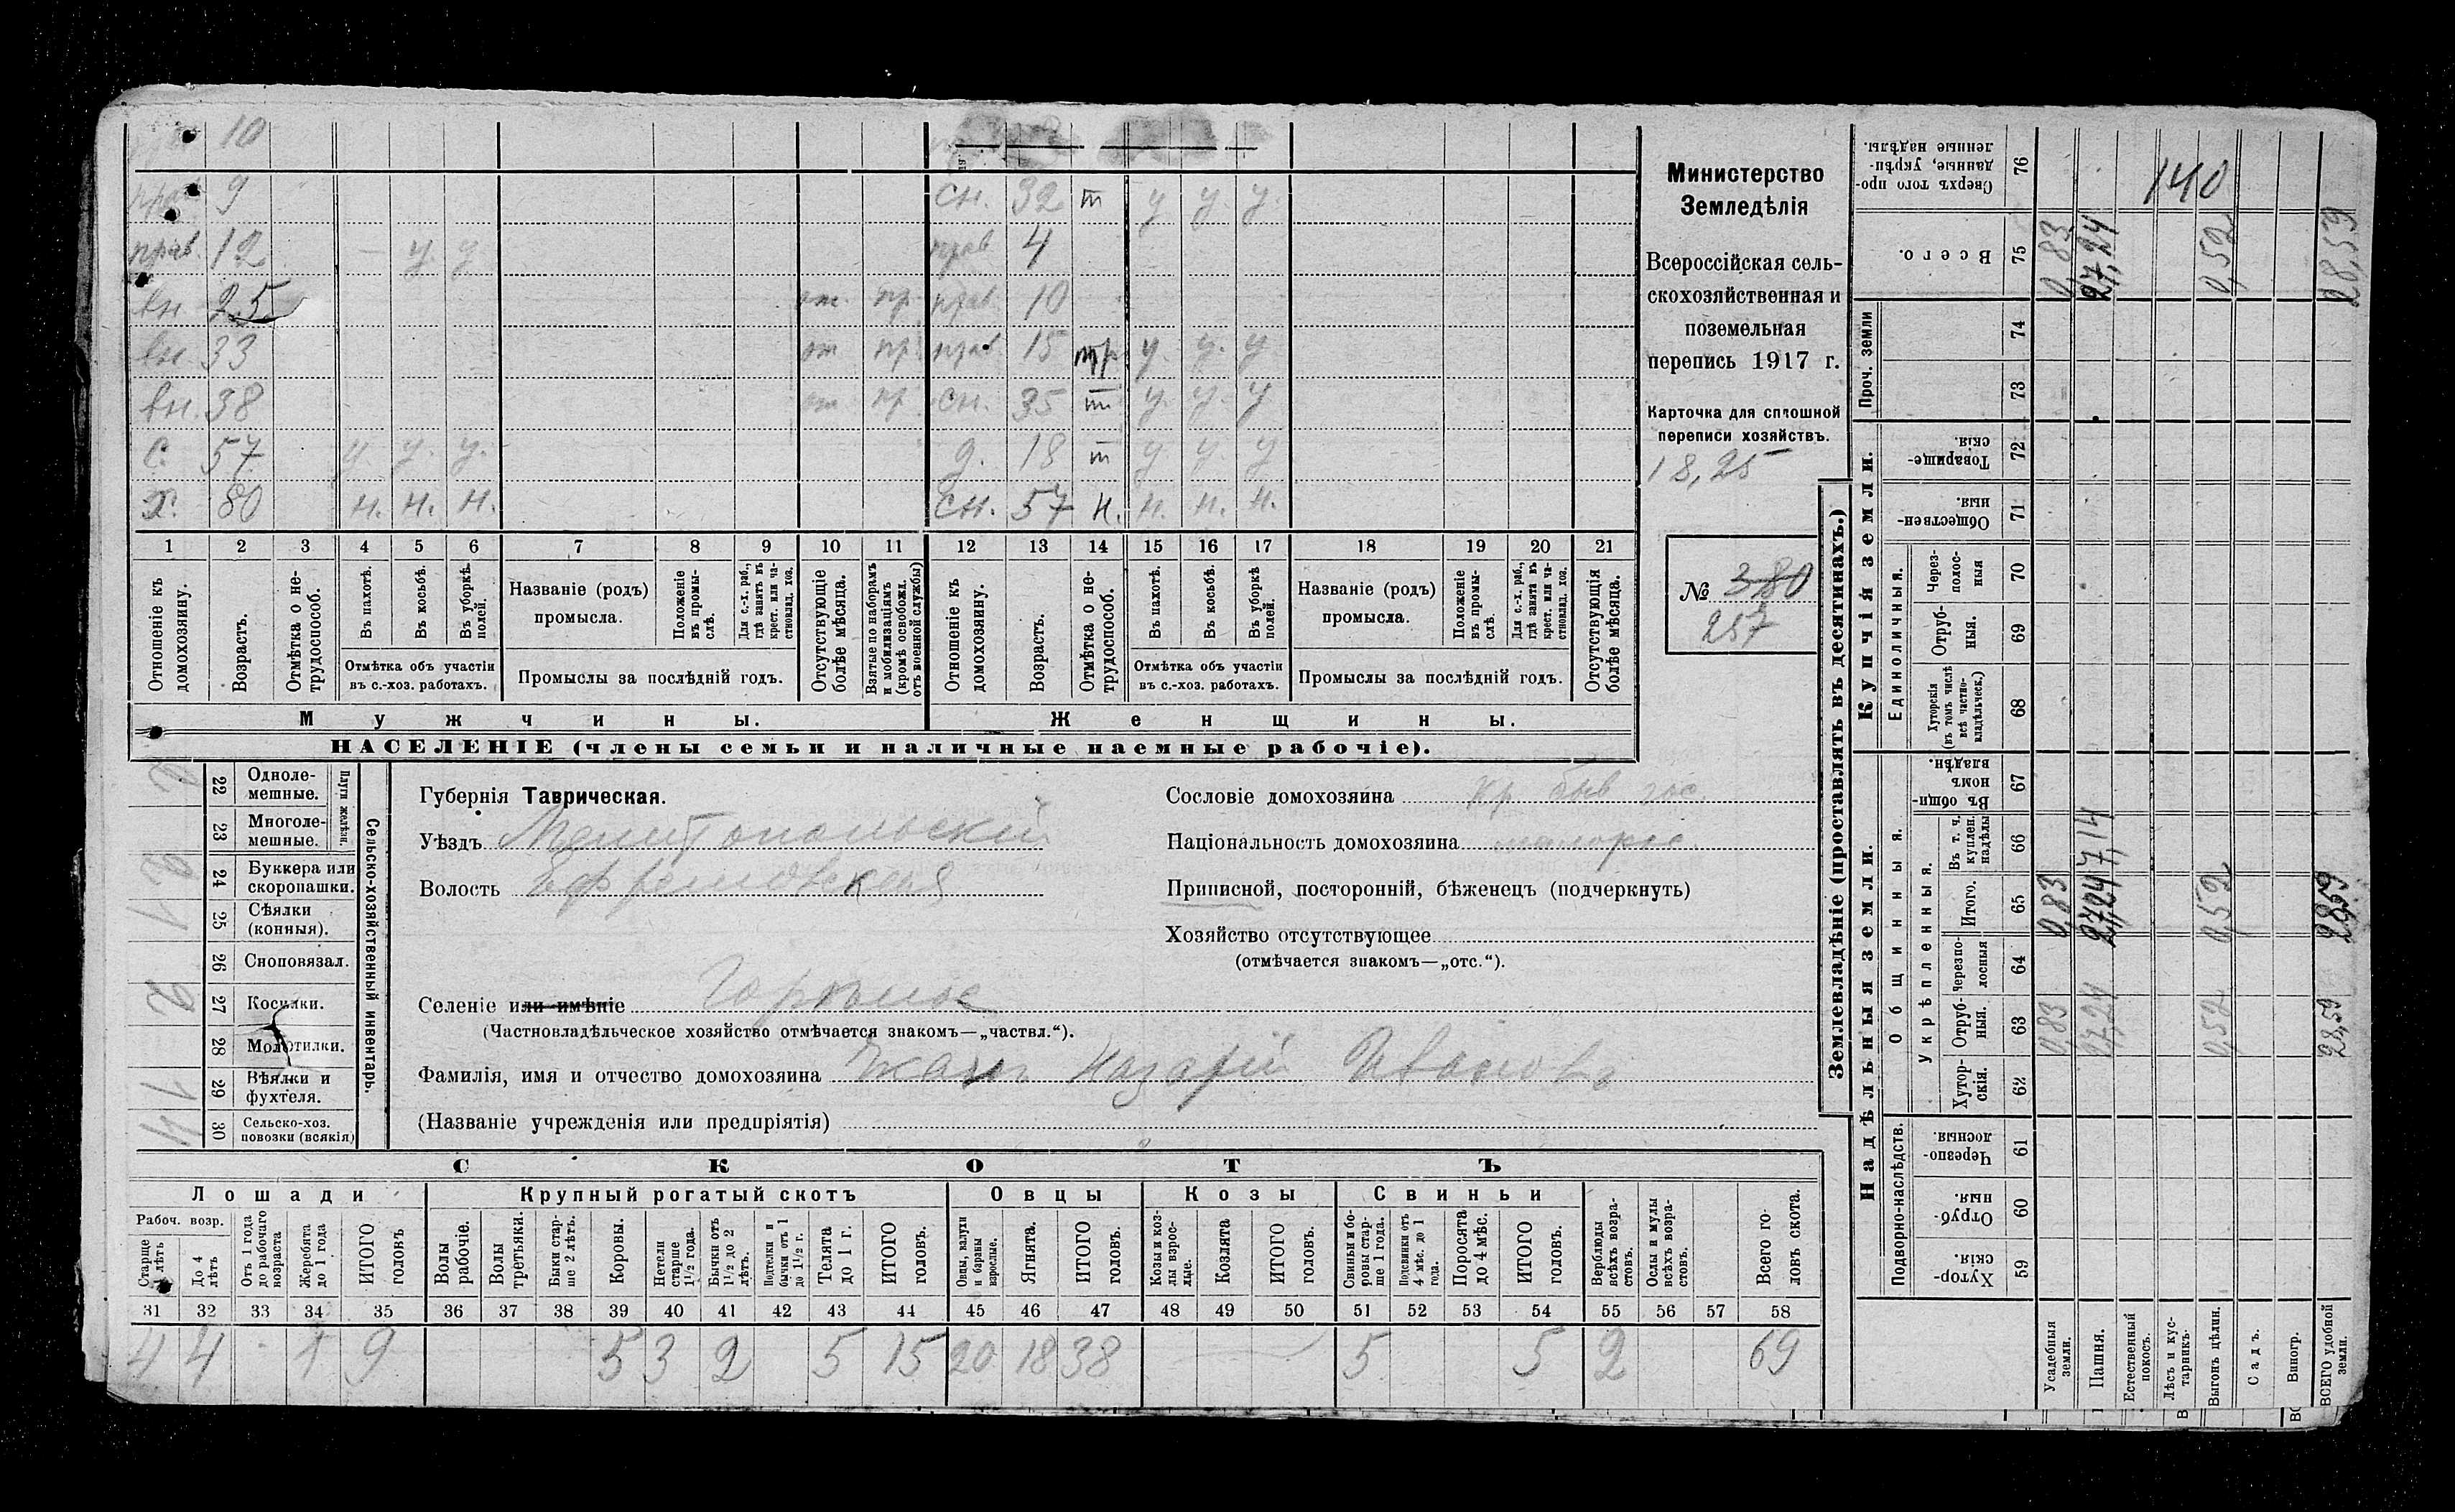 10
прав 9
прав 12 — у. у.
вн. 25 от. пр.
вн. 33 от пр.
вн. 38 от пр.
с. 57 у. у. у.
х. 80 н. н. н.
сн. 32 т у у. у.
прав 4
прав. 10
прав. 15 тр у. у. у
сн. 35 т у. у. у
д. 18 т у. у. у
сн. 57 н. н. н. н.
1 2 3 4 5 6 7 8 9 10 11 12 13 14 15 16 17 18 19 20 21
Отношеніе къ домохозяину.
Возрасть.
Отмѣтка о не-трудоспособ.
Въ пахотѣ.
Въ косьбѣ.
Въ уборкѣ полей.
Отмѣтка объ участіи
въ с.-хоз. работахъ.
Названіе (родъ)
промысла.
Положеніе въ промы-слѣ.
Для с.-х. раб., гдѣ занятъ въ крест. или ча-стновлад. хоз.
Промыслы за послѣдній годъ.
Отсутствующіе болѣе мѣсяца.
Взятые по наборамъ и мобилизаціямъ (кромѣ освобожд. отъ военной службы)
Отношеніе къ домохозяину.
Возрасть.
Отмѣтка о не-трудоспособ.
Въ пахотѣ.
Въ косьбѣ.
Въ уборкѣ полей.
Отмѣтка объ участіи
въ с.-хоз. работахъ.
Названіе (родъ)
промысла.
Положеніе въ промы-слѣ.
Для с.-х. раб., гдѣ занятъ въ крест. или ча-стновлад. хоз.
Промыслы за послѣдній годъ.
Отсутствующія болѣе мѣсяца.
Мужчины.
Женщины.
НАСЕЛЕНІЕ (члены семьи и наличные наемные рабочіе).
Министерство
Земледѣлія
Всероссійская сель-
скохозяйственная и
поземельная
перепись 1917 г.
Карточка для сплошной
переписи хозяйствъ.
18,25
№ 380
257
Сельско-хозяйственный инвентарь.
Плуги желѣзн.
22 Одноле-мешные.
23 Многоле-мешные.
24 Буккера или скоропашки.
25 Сѣялки (конныя).
26 Сноповязал.
27 Косилки.
28 Молотилки.
29 Вѣялки и фухтеля.
30 Сельско-хоз. повозки (всякія)
Губернія Таврическая.
Уѣздъ Мелитопольскій
Волость Ефремовская
Сословіе домохозяина кр быв гос.
Національность домохозяина малорос.
Приписной, посторонній, бѣженецъ (подчеркнуть)
Хозяйство отсутствующее
(отмѣчается знакомъ—„отс.“).
Селеніе или имѣніе Горѣлое
(Частновладѣльческое хозяйство отмѣчается знакомъ—„частвл.“).
Фамилія, имя и отчество домохозяина Назарій Ивановъ
(Названіе учрежденія или предпріятія)
СКОТЪ
Лошади
Крупный рогатый скотъ
Овцы
Козы
Свиньи
Рабоч. возр.
Старше 4 лѣтъ
До 4 лѣтъ
Отъ 1 года до рабочаго возраста
Жеребята до 1 года
ИТОГО головъ
Волы рабочіе.
Волы третьяки.
Быки стар-ше 2 лѣтъ.
Коровы.
Нетели старше 1½ года.
Бычки отъ 1½ до 2 лѣтъ.
Подтелки и бычки отъ 1 до 1½ г.
Телята до 1 г.
ИТОГО головъ.
Овцы, валухи и бараны взрослые.
Ягнята.
ИТОГО головъ.
Козы и коз-лы взрос-лые.
Козлята
ИТОГО головъ.
Свиньи и бо-ровы стар-ше 1 года.
Подсвинки отъ 4 мѣс. до 1 года.
Поросята до 4 мѣс.
ИТОГО головъ.
Верблюды всѣхъ возра-стовъ.
Ослы и мулы всѣхъ возра-стовъ.
Всего го-ловъ скота.
31 32 33 34 35 36 37 38 39 40 41 42 43 44 45 46 47 48 49 50 51 52 53 54 55 56 57 58
4 4 - 1 9 5 3 2 5 15 20 18 38 5 5 2 69
Землевладѣніе (проставлять въ десятинахъ.)
Надѣльныя земли.
Купчія земли.
Проч. земли
Подворно-наслѣдств.
Общинныя.
Укрѣпленныя.
Единоличныя.
59 Хутор-скія.
60 Отруб-ныя.
61 Черезпо-лосныя.
62 Хутор-скія.
63 Отруб-ныя.
64 Черезпо-лосныя
65 Итого.
66 Въ т. ч. куплен. надѣлы
67 Въ общи-номъ владѣн.
68 Хуторскія (въ томъ числѣ всѣ частно-владѣльческ.)
69 Отруб-ныя.
70 Через-полос-ныя
71 Обществен-ныя.
72 Товарище-скія.
73
74
75 Всего.
76 Сверхъ того про-данные, укрѣп-ленные надѣлы.
Усадебныя земли. 0,83 0,83 0,83
Пашня. 27,24 27,24 7,14 27,24
Естественный покосъ.
Лѣсъ и кус-тарникъ.
Выгонъ цѣлин. 0,52 0,52 0,52
Садъ.
Виногр.
ВСЕГО удобной земли. 28,59 28,59 28,59
140